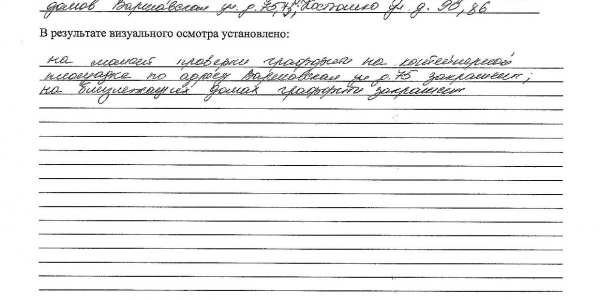 домов Варшавская ул. д. 75, Костюшко ул. д. 90, 86
В результате визуального осмотра установлено:
на момент проверки граффити на контейнерной
площадке по адресу Варшавская ул д. 75 закрашены;
на близлежащих домах граффити закрашены